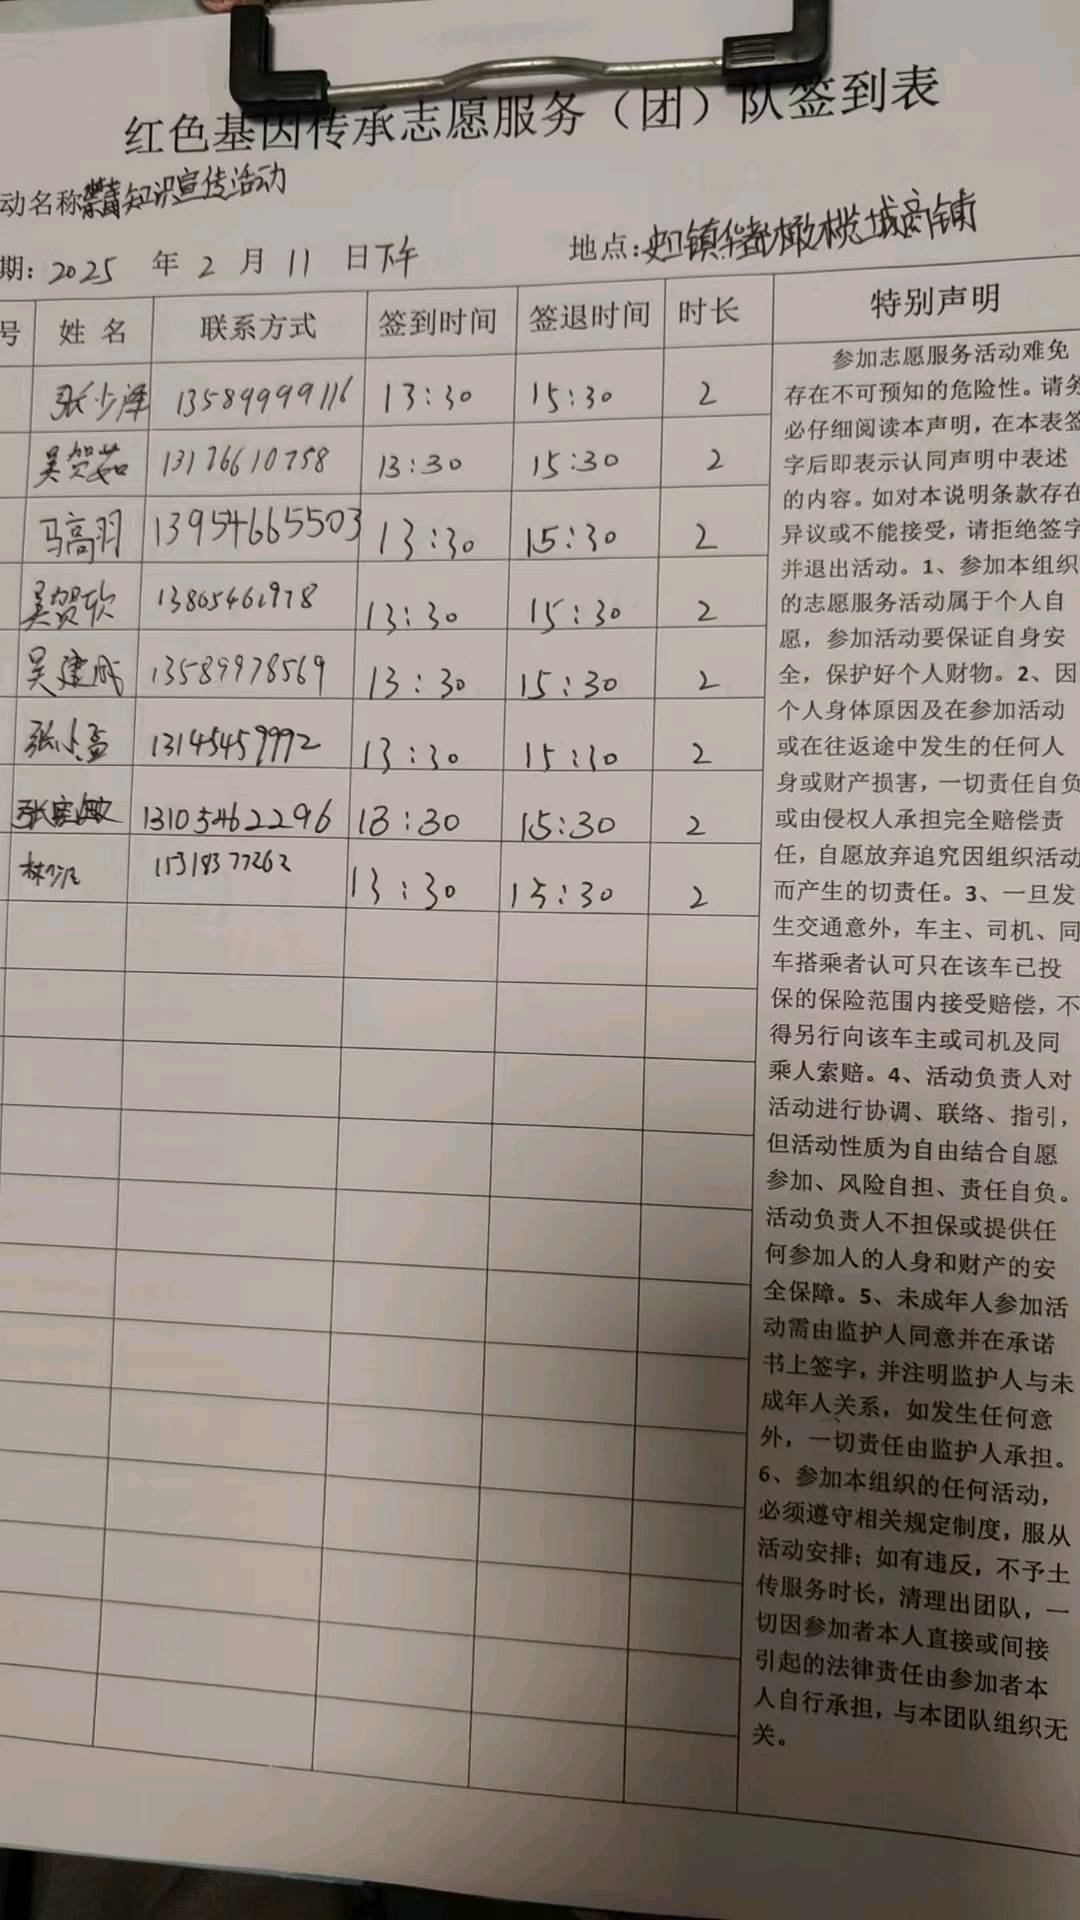 红色基因传承志愿服务（团）队签到表
动名称 禁毒知识宣传活动
期: 2025 年 2 月 11 日下午 地点: 史口镇华都橄榄城商铺
号 姓名 联系方式 签到时间 签退时间 时长 特别声明
张少泽 13589999116 13:30 15:30 2
吴贺茹 13176610758 13:30 15:30 2
马高羽 13954665503 13:30 15:30 2
吴贺欣 13805461978 13:30 15:30 2
吴建成 13589978569 13:30 15:30 2
张小孟 13145459992 13:30 15:30 2
张 敏 13105462296 13:30 15:30 2
林 15318377262 13:30 15:30 2
参加志愿服务活动难免
存在不可预知的危险性。请务
必仔细阅读本声明，在本表签
字后即表示认同声明中表述
的内容。如对本说明条款存在
异议或不能接受，请拒绝签字
并退出活动。1、参加本组织
的志愿服务活动属于个人自
愿，参加活动要保证自身安
全，保护好个人财物。2、因
个人身体原因及在参加活动
或在往返途中发生的任何人
身或财产损害，一切责任自负
或由侵权人承担完全赔偿责
任，自愿放弃追究因组织活动
而产生的切责任。3、一旦发
生交通意外，车主、司机、同
车搭乘者认可只在该车已投
保的保险范围内接受赔偿，不
得另行向该车主或司机及同
乘人索赔。4、活动负责人对
活动进行协调、联络、指引，
但活动性质为自由结合自愿
参加、风险自担、责任自负。
活动负责人不担保或提供任
何参加人的人身和财产的安
全保障。5、未成年人参加活
动需由监护人同意并在承诺
书上签字，并注明监护人与未
成年人关系，如发生任何意
外，一切责任由监护人承担。
6、参加本组织的任何活动，
必须遵守相关规定制度，服从
活动安排；如有违反，不予土
传服务时长，清理出团队，一
切因参加者本人直接或间接
引起的法律责任由参加者本
人自行承担，与本团队组织无
关。